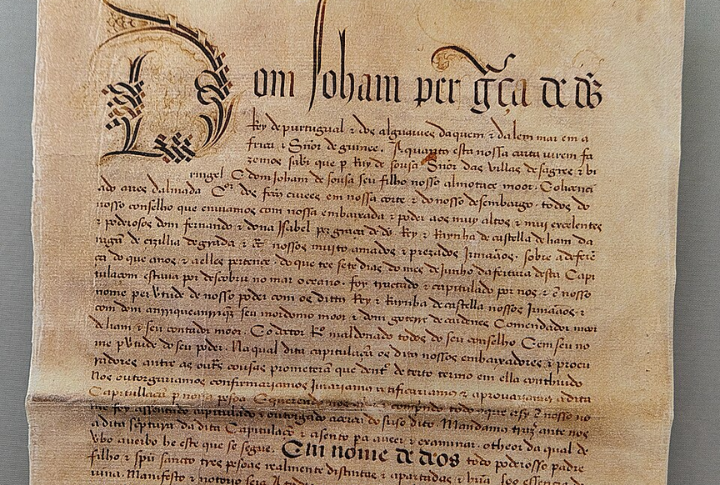 Dom Joham per gͬça de ds
Rey de purtugual e dos alguarues daquem e dalem mar em a
frica e Sñor de guinee. A quantos esta nossa carta virem fa
zemos sabr que p Ruy de sousa Sñor das villas de sagres e bi
ringel E dom Joham de sousa seu filho nosso almotace moor E o licencia
ado aires dalmada Corr dos fctos ciuees em nossa corte e do nosso desembargo todos do
nosso conselho que enuiamos com nossa embaixada e poder aos muy altos e muy excelentes
e poderosos dom fernando e dona Isabel per graça de ds Rey e Raynha de castella de liam da
ragam de cizilia de grada e c nossos muito amados e prezados Irmaãos sobre a deferen
ça do que a nos e a elles pertence do que ate sete dias do mes de Junho da feitura desta Capi
tulacom estaua por descobrir no mar oceano. foy trautado e capitulado por nos e em nosso
nome per vertude de nosso poder com os dittos Rey e Raynha de castella nossos Irmaãos e
com dom anrrique anrriquez seu moordomo moor e dom goterre de cardenes Comendador moor
de liam e seu contador moor. E o doctor Ro maldonado todos do seu conselho E em seu no
me per vertude do seu poder. Na qual dita capitulaçam os ditos nossos embaixadores e procu
radores antre as outras cousas prometeram que dentro de certo termo em ella contheudo
Nos outorguariamos confirmariamos Jurariamos ratificariamos e aprouariamos a dita
Capitullaçam per nossa pesoa E querendo e comprindo todo o que asy em nosso no
me foy assentado capitulado e outorgado acerca do suso dito Mandamos trazer ante nos
a dita scriptura da dita Capitulaçam e asento pera a veer e examinar. o theor da qual de
verbo a verbo he este que se segue. Em nome de deos todo poderosso padre
filho e spu sancto tres pesoas realmente distintas e apartadas e hua soo essencia de
uina. Manifesto e notorio seja